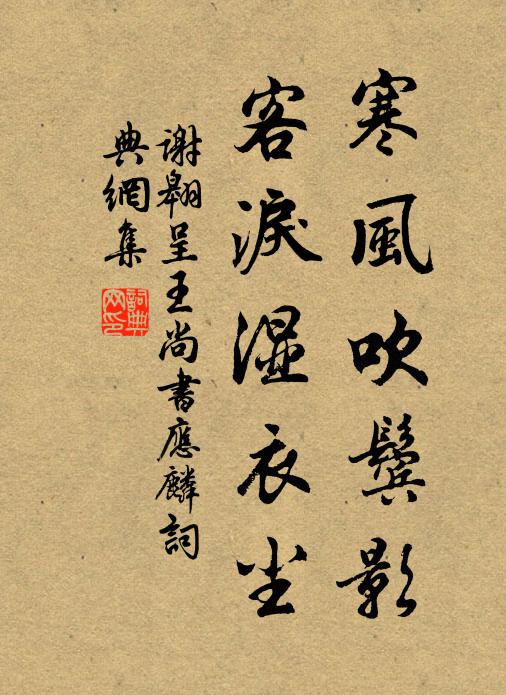 寒風吹鬢影
客淚濕衣尘
謝翱呈王尚書應麟詞
典網集
詞典網印